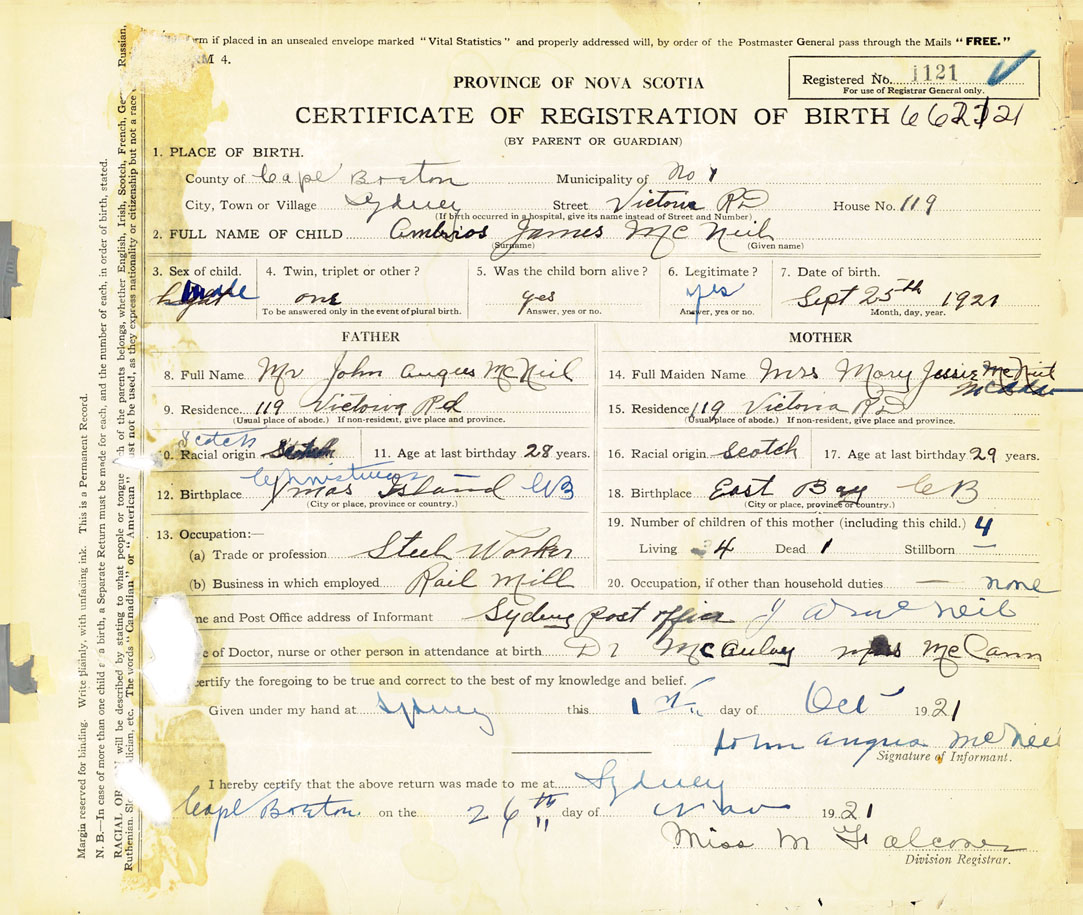 form if placed in an unsealed envelope marked "Vital Statistics" and properly addressed will, by order of the Postmaster General pass through the Mails "FREE."
RM 4.
Registered No. 1121
For use of Registrar General only.
PROVINCE OF NOVA SCOTIA
CERTIFICATE OF REGISTRATION OF BIRTH
(BY PARENT OR GUARDIAN)
1. PLACE OF BIRTH.
County of Cape Breton Municipality of No 1
City, Town or Village Sydney Street Victoria Rd House No. 119
(If birth occurred in a hospital, give its name instead of Street and Number)
2. FULL NAME OF CHILD Ambros James McNeil
(Surname) (Given name)
3. Sex of child. 4. Twin, triplet or other? 5. Was the child born alive? 6. Legitimate? 7. Date of birth.
male one yes yes Sept 25th 1921
To be answered only in the event of plural birth. Answer, yes or no. Answer, yes or no. Month, day, year.
FATHER
8. Full Name Mr John Angus McNeil
9. Residence 119 Victoria Rd
(Usual place of abode.) If non-resident, give place and province.
Scotch
10. Racial origin Scotch 11. Age at last birthday 28 years.
Christmas
12. Birthplace Xmas Island CB
(City or place, province or country.)
13. Occupation:—
(a) Trade or profession Steel Worker
(b) Business in which employed Rail Mill
MOTHER
14. Full Maiden Name Mrs Mary Jessie McNeil
15. Residence 119 Victoria Rd
(Usual place of abode.) If non-resident, give place and province.
16. Racial origin Scotch 17. Age at last birthday 29 years.
18. Birthplace East Bay CB
(City or place, province or country.)
19. Number of children of this mother (including this child.) 4
Living 4 Dead 1 Stillborn —
20. Occupation, if other than household duties — none
me and Post Office address of Informant Sydney post office J A McNeil
e of Doctor, nurse or other person in attendance at birth Dr McAulay Mrs McCann
certify the foregoing to be true and correct to the best of my knowledge and belief.
Given under my hand at Sydney this 1st day of Oct 1921
John Angus McNeil
Signature of Informant.
I hereby certify that the above return was made to me at Sydney
Cape Breton on the 26th day of Nov 1921
Miss M Falconer
Division Registrar.
Margin reserved for binding. Write plainly, with unfading ink. This is a Permanent Record.
N. B.—In case of more than one child a birth, a Separate Return must be made for each, and the number of each, in order of birth, stated.
RACIAL OR will be described by stating to what people or tongue ch of the parents belongs, whether English, Irish, Scotch, French, Ge Russian,
Ruthenian, etc. The words "Canadian" or "American" ust not be used, as they express nationality or citizenship but not a race